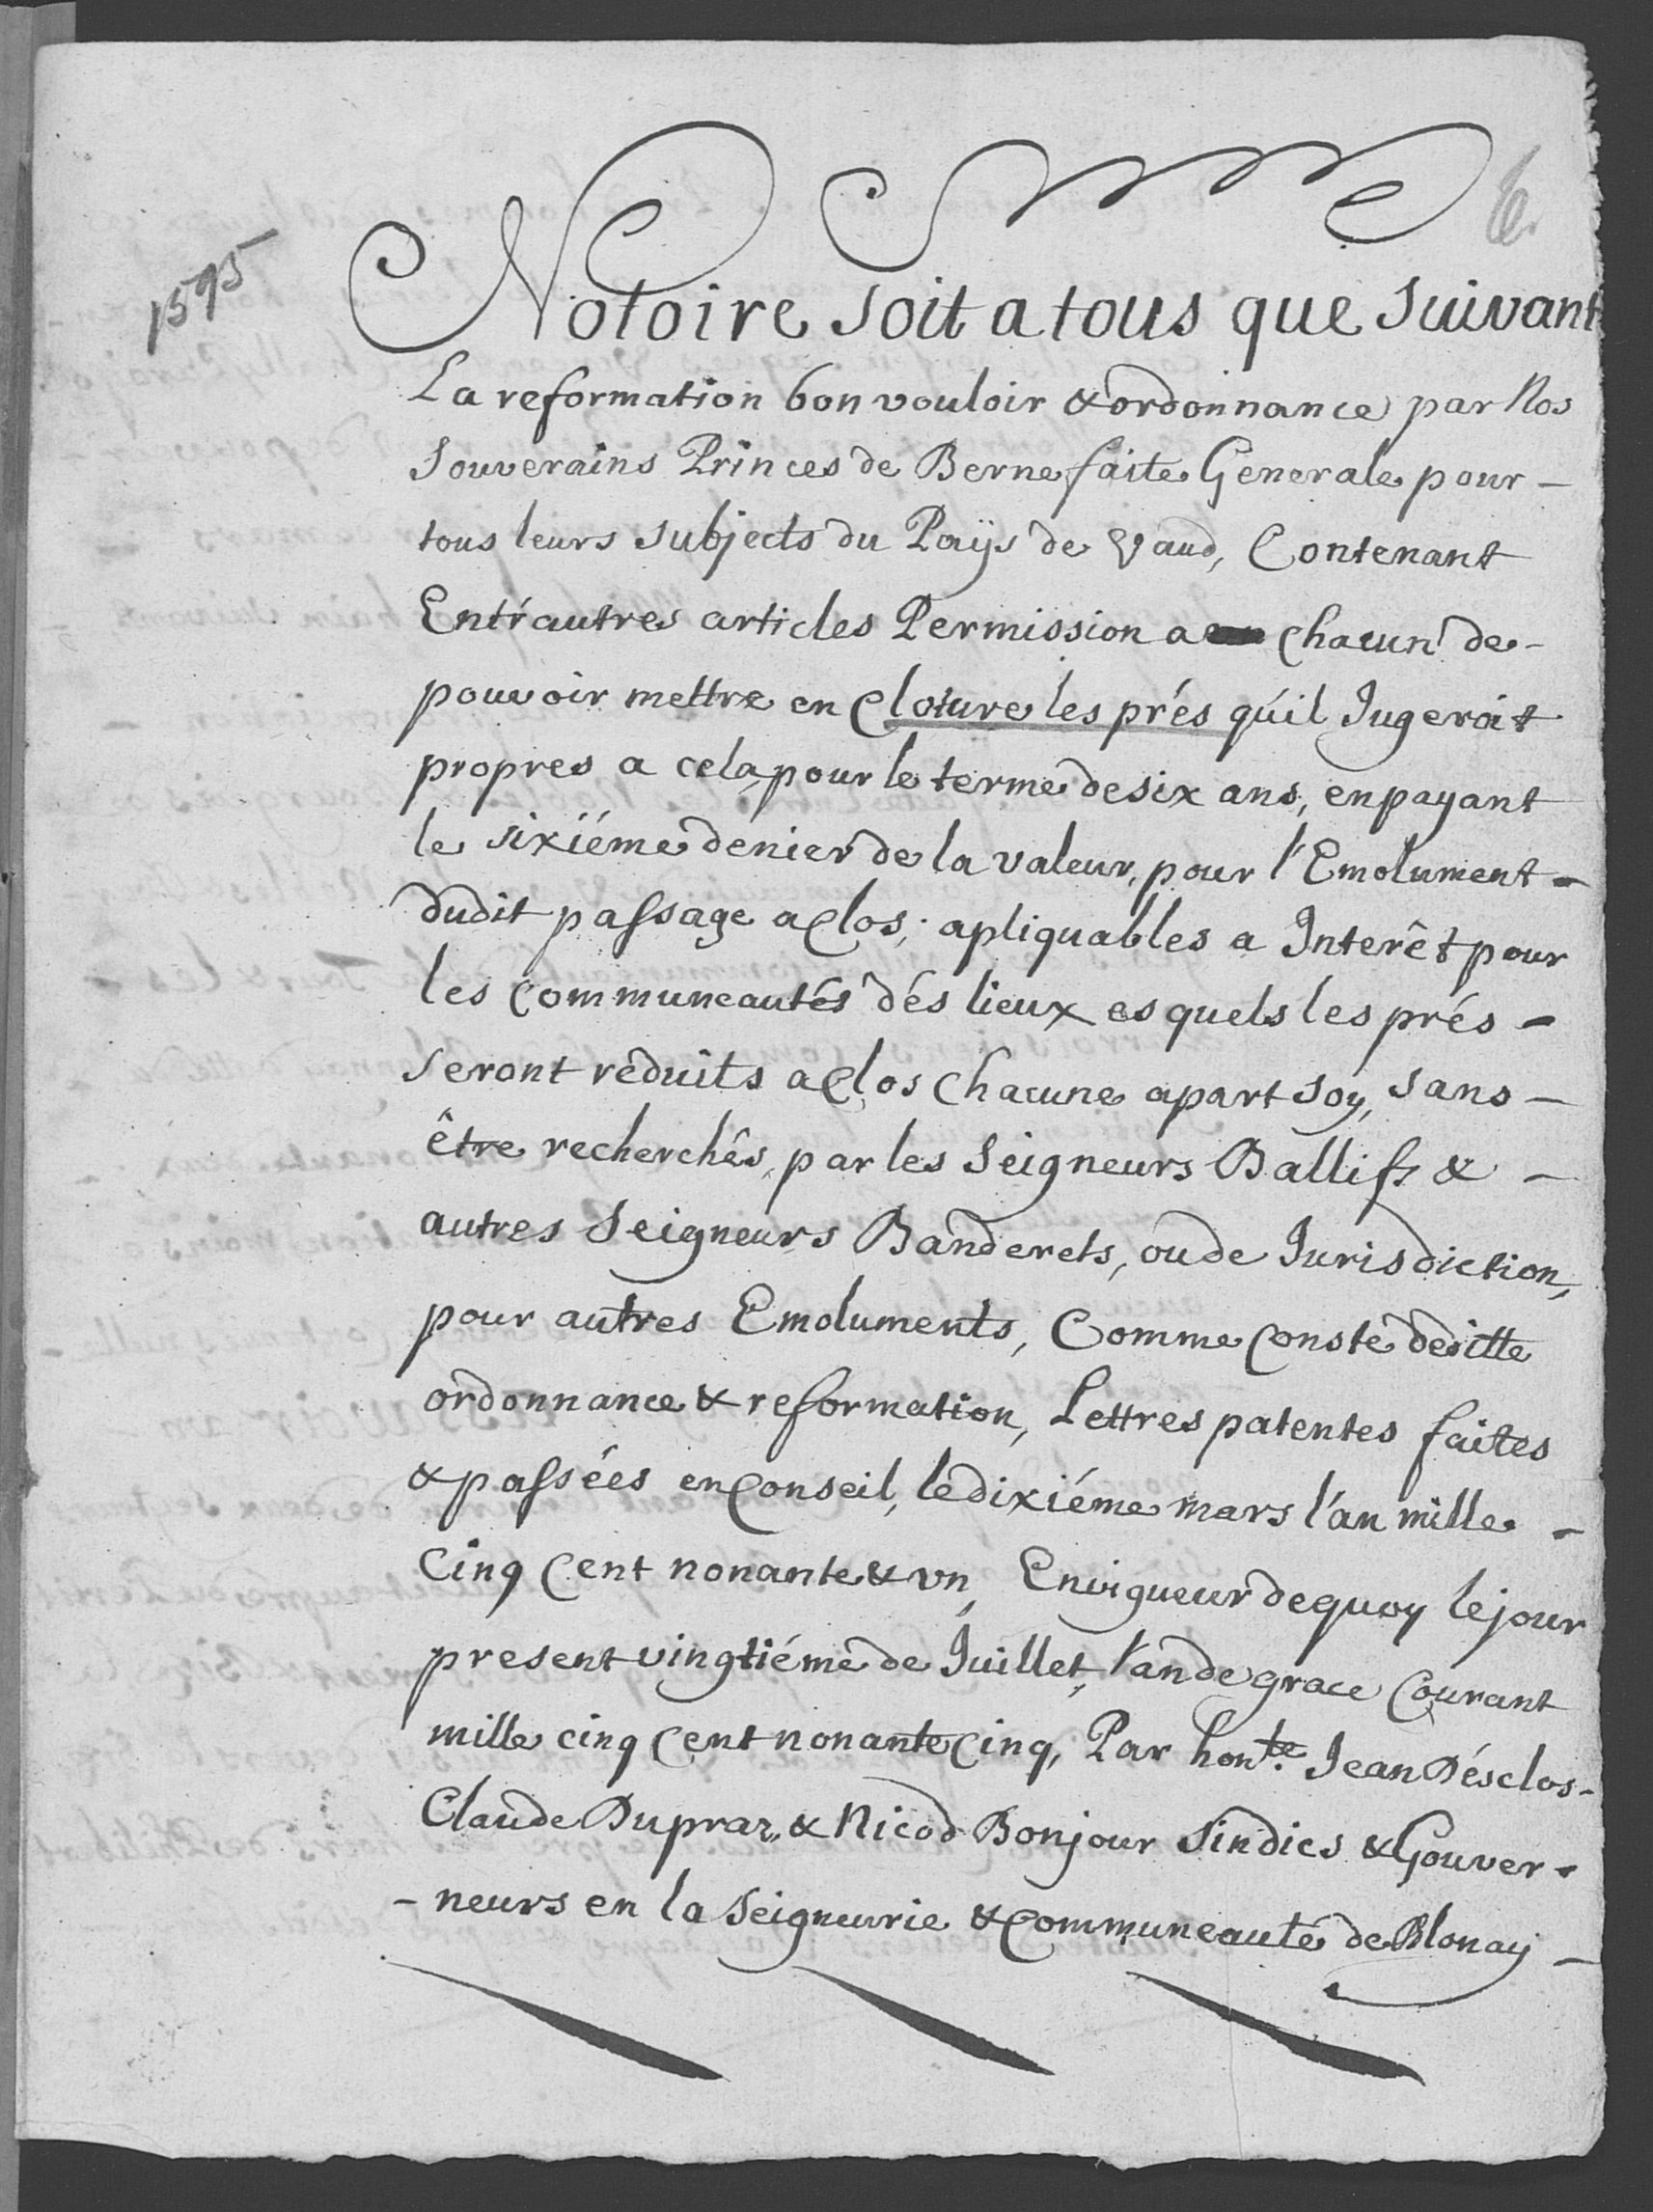 1595
Notoire soit a tous que suivant
La reformation bon vouloir & ordonnance par Nos
souverains Princes de Berne faite Generale pour -
tous leurs subjects du Païjs de Vaud, Contenant
Entr'autres articles Permission a chacun de -
pouvoir mettre en Cloture les prés qu'il Jugeroit
propres a cela, pour le terme de six ans, en payant
le sixiéme denier de la valeur, pour l'Emolument -
dudit passage a Clos; apliquables a Interêt pour
les Communeautés dés lieux es quels les prés -
seront réduits a Clos Chacune apart soy, sans -
être recherchés, par les Seigneurs Ballifs & -
autres Seigneurs Banderets, ou de Jurisdiction,
pour autres Emoluments, Comme Conste desitte
ordonnance & reformation, Lettres patentes faites
& passées en Conseil, le dixiéme mars l'an mille -
Cinq Cent nonante & un, En vigueur de quoy le jour
present vingtiéme de Juillet, l'an de grace Courant
mille cinq Cent nonante Cinq, Par hon.te Jean Désclos -
Claude Dupraz, & Nicod Bonjour Sindics & Gouver -
- neurs en la Seigneurie & Communeauté de Blonaÿ -